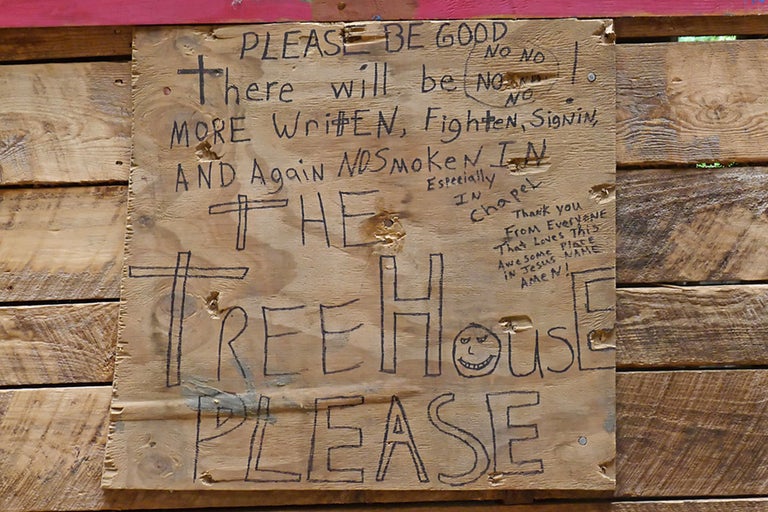 PLEASE BE GOOD
There will be NO NO !
NO NO
NO
MORE WrittEN, FightEN, SigNiN,
AND AgaiN NO SmokeN IN
Especially
IN
Chapel
THE
Thank you
From Everyone
That Loves This
Awesome Place
in Jesus NAME
AMEN!
TREE HousE
PLEASE